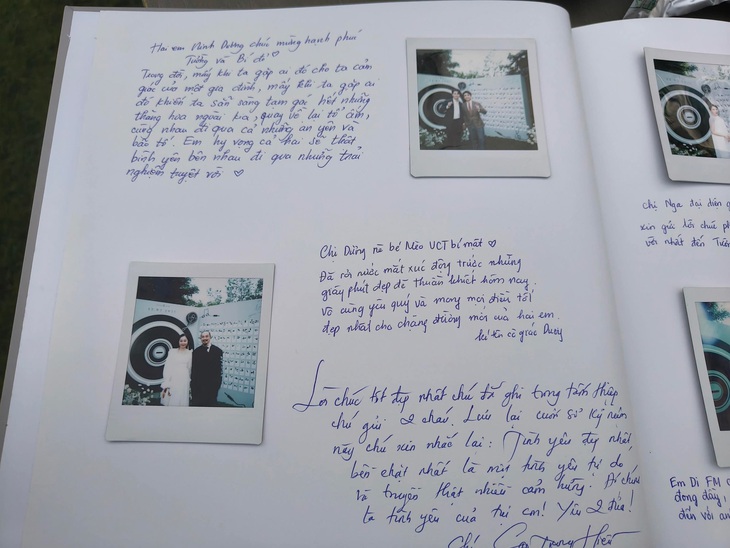 Hai em Minh Dương chúc mừng hạnh phúc
Tường và Bí đỉ ♡
Trong đời, mấy khi ta gặp ai đó cho ta cảm
giác của một gia đình, mấy khi ta gặp ai
đó khiến ta sẵn sàng tạm gác hết những
thăng hoa ngoài kia, quay về lại tổ ấm,
cùng nhau đi qua cả những an yên và
bão tố. Em hy vọng cả hai sẽ thật
bình yên bên nhau đi qua những trải
nghiệm tuyệt vời ♡
Chị Dương và bé Mèo VCT bí mật ♡
Đã rơi nước mắt xúc động trước những
giây phút đẹp đẽ thuần khiết hôm nay
vô cùng yêu quý và mong mọi điều tốt
đẹp nhất cho chặng đường mới của hai em.
kí tên cô giáo Dương
Lời chúc tốt đẹp nhất chú đã ghi trong tấm thiệp
chú gửi 2 cháu. Lưu lại cuốn sổ kỷ niệm
này chú xin nhắc lại: Tình yêu đẹp nhất
bền chặt nhất là một tình yêu tự do
và truyền thật nhiều cảm hứng! Đó chính
là tình yêu của tụi em! Yêu 2 đứa!
Chị Nga đại diện
xin gửi lời chúc
với nhất đến
Em Di FM
đong đầy,
đến với